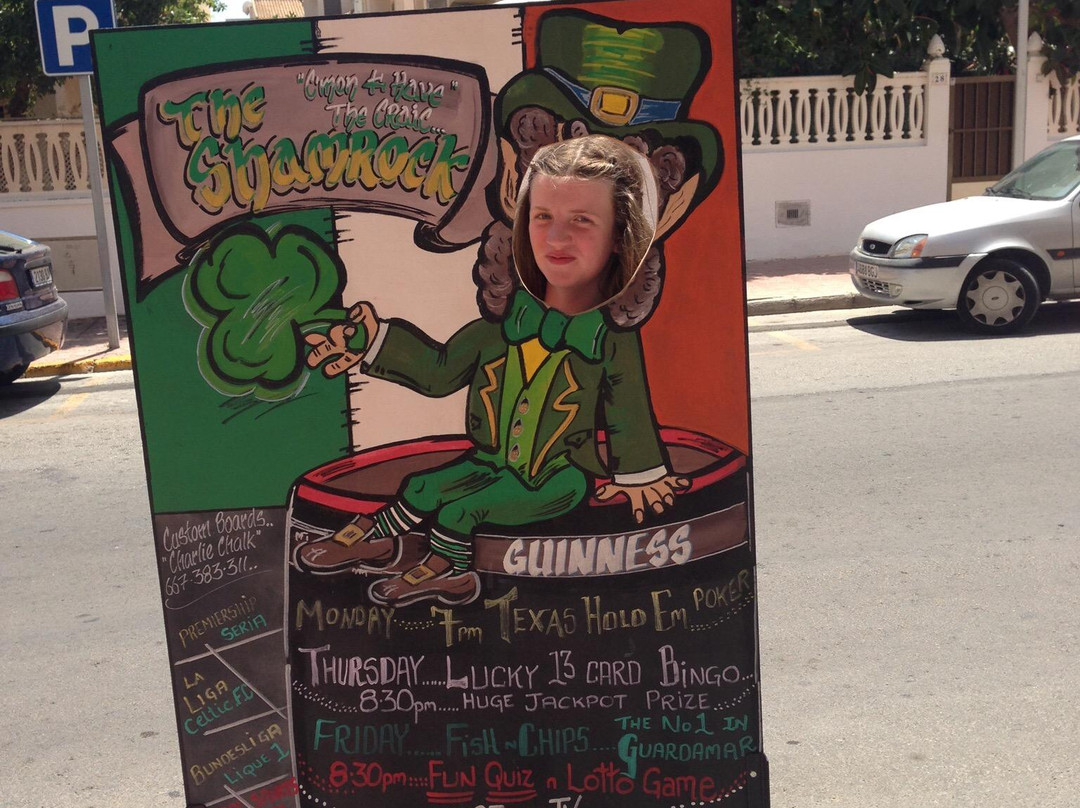 P
"C'mon & Have"
The Craic...
The
Shamrock
Custom Boards..
"Charlie Chalk"
667-383-311..
PREMIERSHIP
SERIA
LA
LIGA
Celtic.FC
BUNDESLIGA
LIQUE 1
GUINNESS
MONDAY...... 7pm TEXAS HOLD EM POKER
THURSDAY...... LUCKY 13 CARD BINGO...
8:30pm..... HUGE JACKPOT PRIZE....
FRIDAY...... FISH N CHIPS.... THE No1 IN
GUARDAMAR
8:30pm.... FUN QUIZ n LOTTO GAME
28